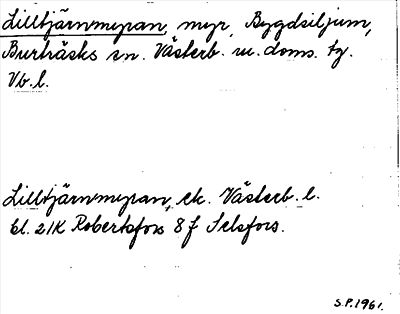 Lilltjärnmyran, myr, Bygdsiljum,
Burträsks sn. Västerb. n. doms. tg.
Vb. l.
Lilltjärnmyran, ek. Västerb. l.
bl. 21K Robertsfors 8 f Selsfors.
S.P. 1961.